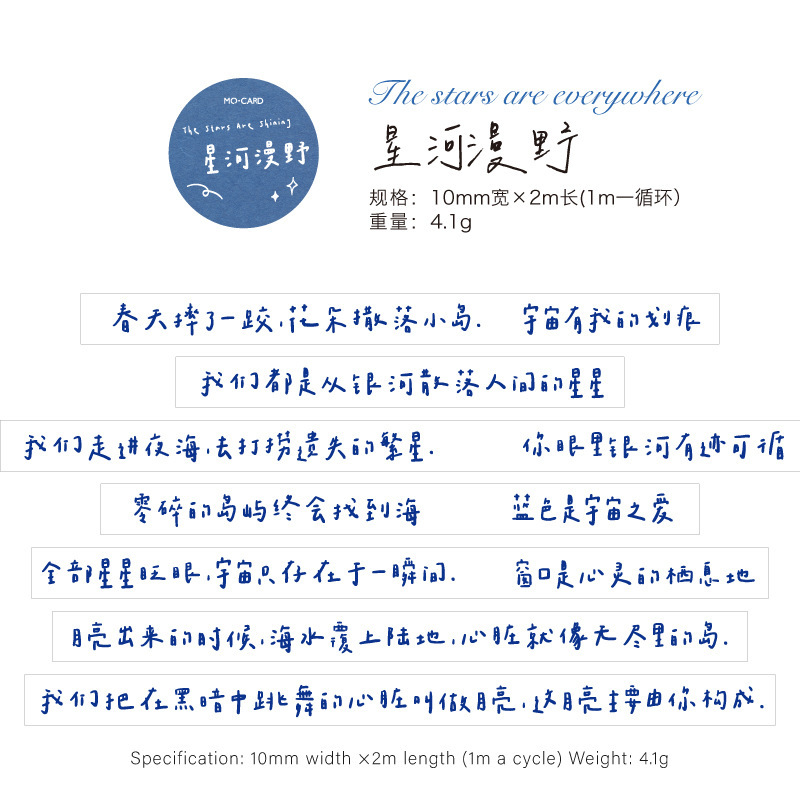 MO·CARD
The Stars Are Shining
星河漫野
The stars are everywhere
星河漫野
规格：10mm宽×2m长(1m一循环)
重量：4.1g
春天摔了一跤,花朵撒落小岛. 宇宙有我的划痕
我们都是从银河散落人间的星星
我们走进夜海,去打捞遗失的繁星. 你眼里银河有迹可循
零碎的岛屿终会找到海 蓝色是宇宙之爱
全部星星眨眼,宇宙只存在于一瞬间. 窗口是心灵的栖息地
月亮出来的时候,海水覆上陆地,心脏就像无尽里的岛.
我们把在黑暗中跳舞的心脏叫做月亮,这月亮主要由你构成.
Specification: 10mm width ×2m length (1m a cycle) Weight: 4.1g